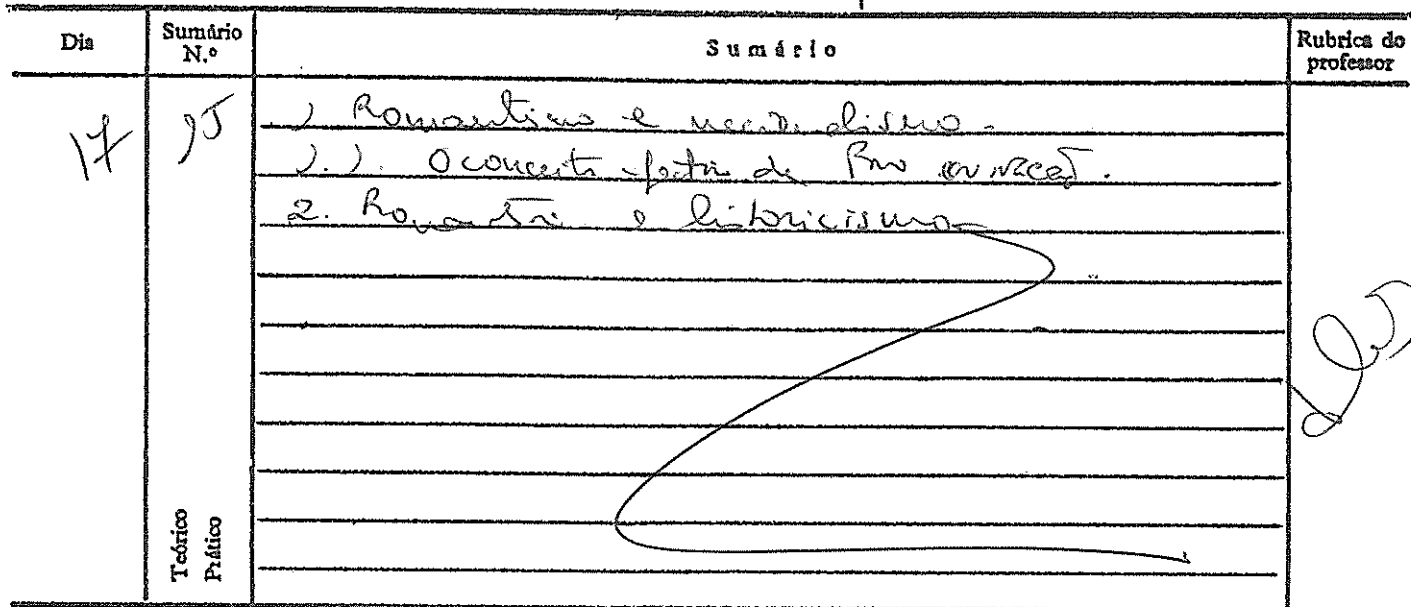 Dia
Sumário N.º
Sumário
Rubrica do professor
17
1 Romantismo e nacionalismo.
1.1. O conceito de ou nação.
2. Romantismo e historicismo
Teórico
Prático